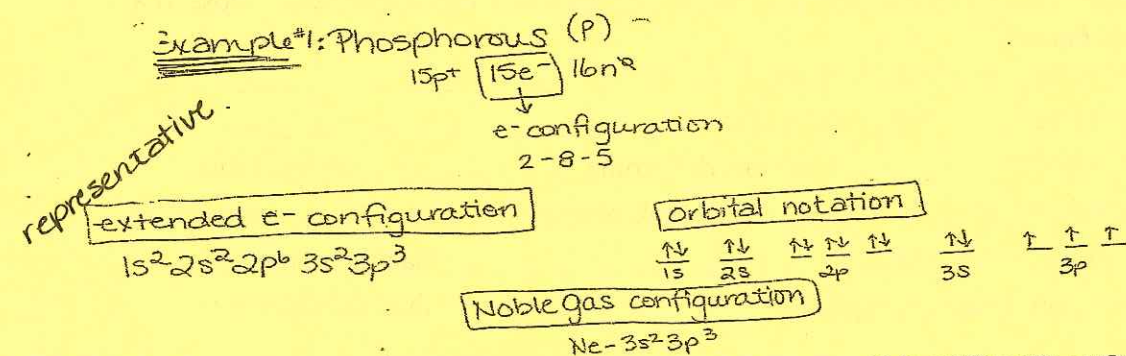 Example #1: Phosphorous (P)
15p⁺ 15e⁻ 16n°
e⁻ configuration
2-8-5
representative.
extended e⁻ configuration
1s² 2s² 2p⁶ 3s² 3p³
orbital notation
↑↓ ↑↓ ↑↓ ↑↓ ↑↓ ↑↓ ↑ ↑ ↑
1s 2s 2p 3s 3p
Noble gas configuration
Ne - 3s² 3p³